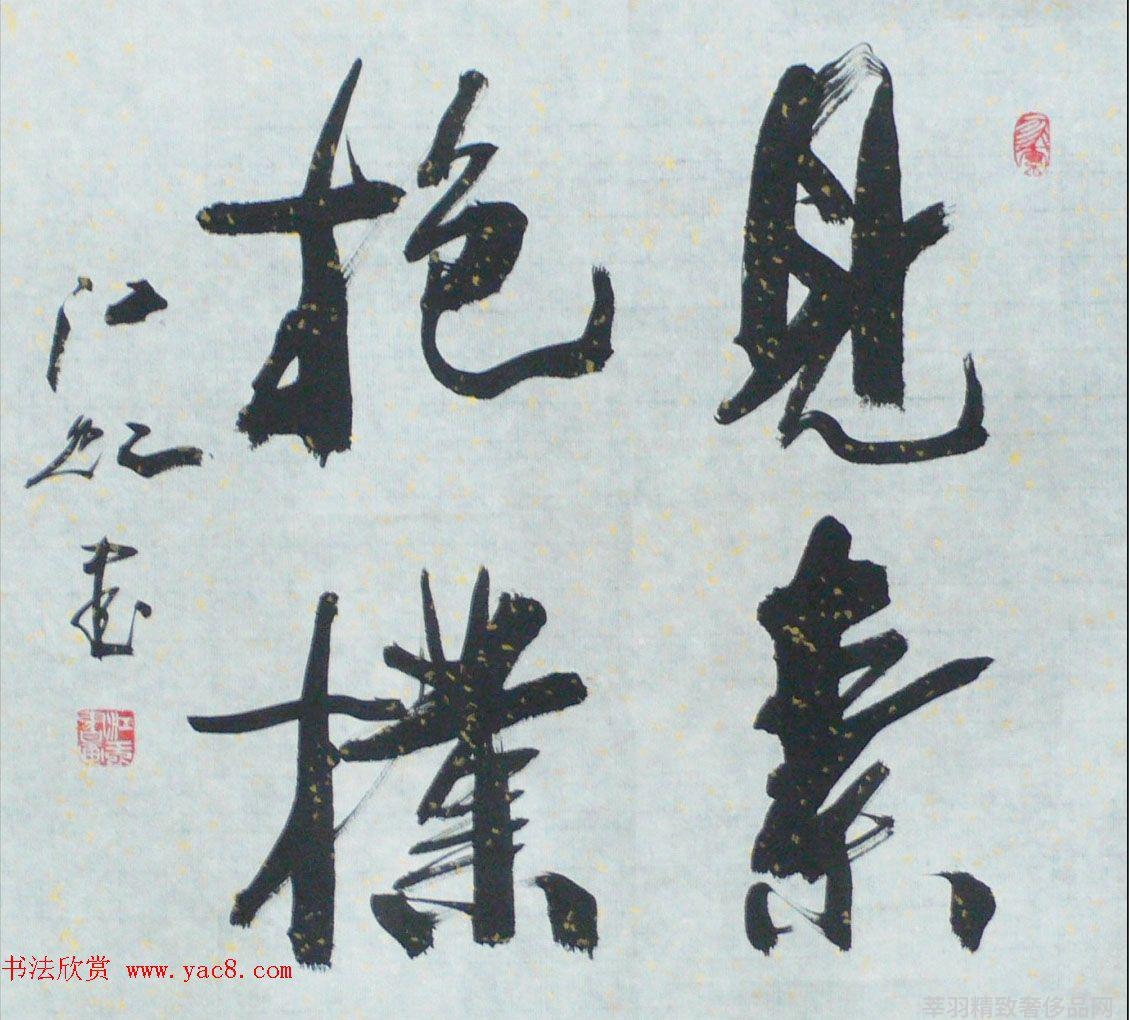 見素
抱樸
江
書
书法欣赏 www.yac8.com
莘羽精致奢侈品网